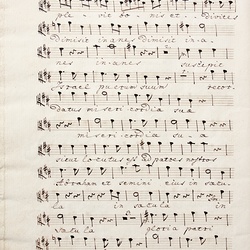 ple - vit bo - nis et - divites
dimisit inanes dimisit in a.
nes in anes suscepit
Israel puerum suum recor.
datus misericordia sua
misericordia su - a
sicut locutus est ad patres nostros
Abraham et semini eius in saecu.
la in saecula in
saecula gloria patri